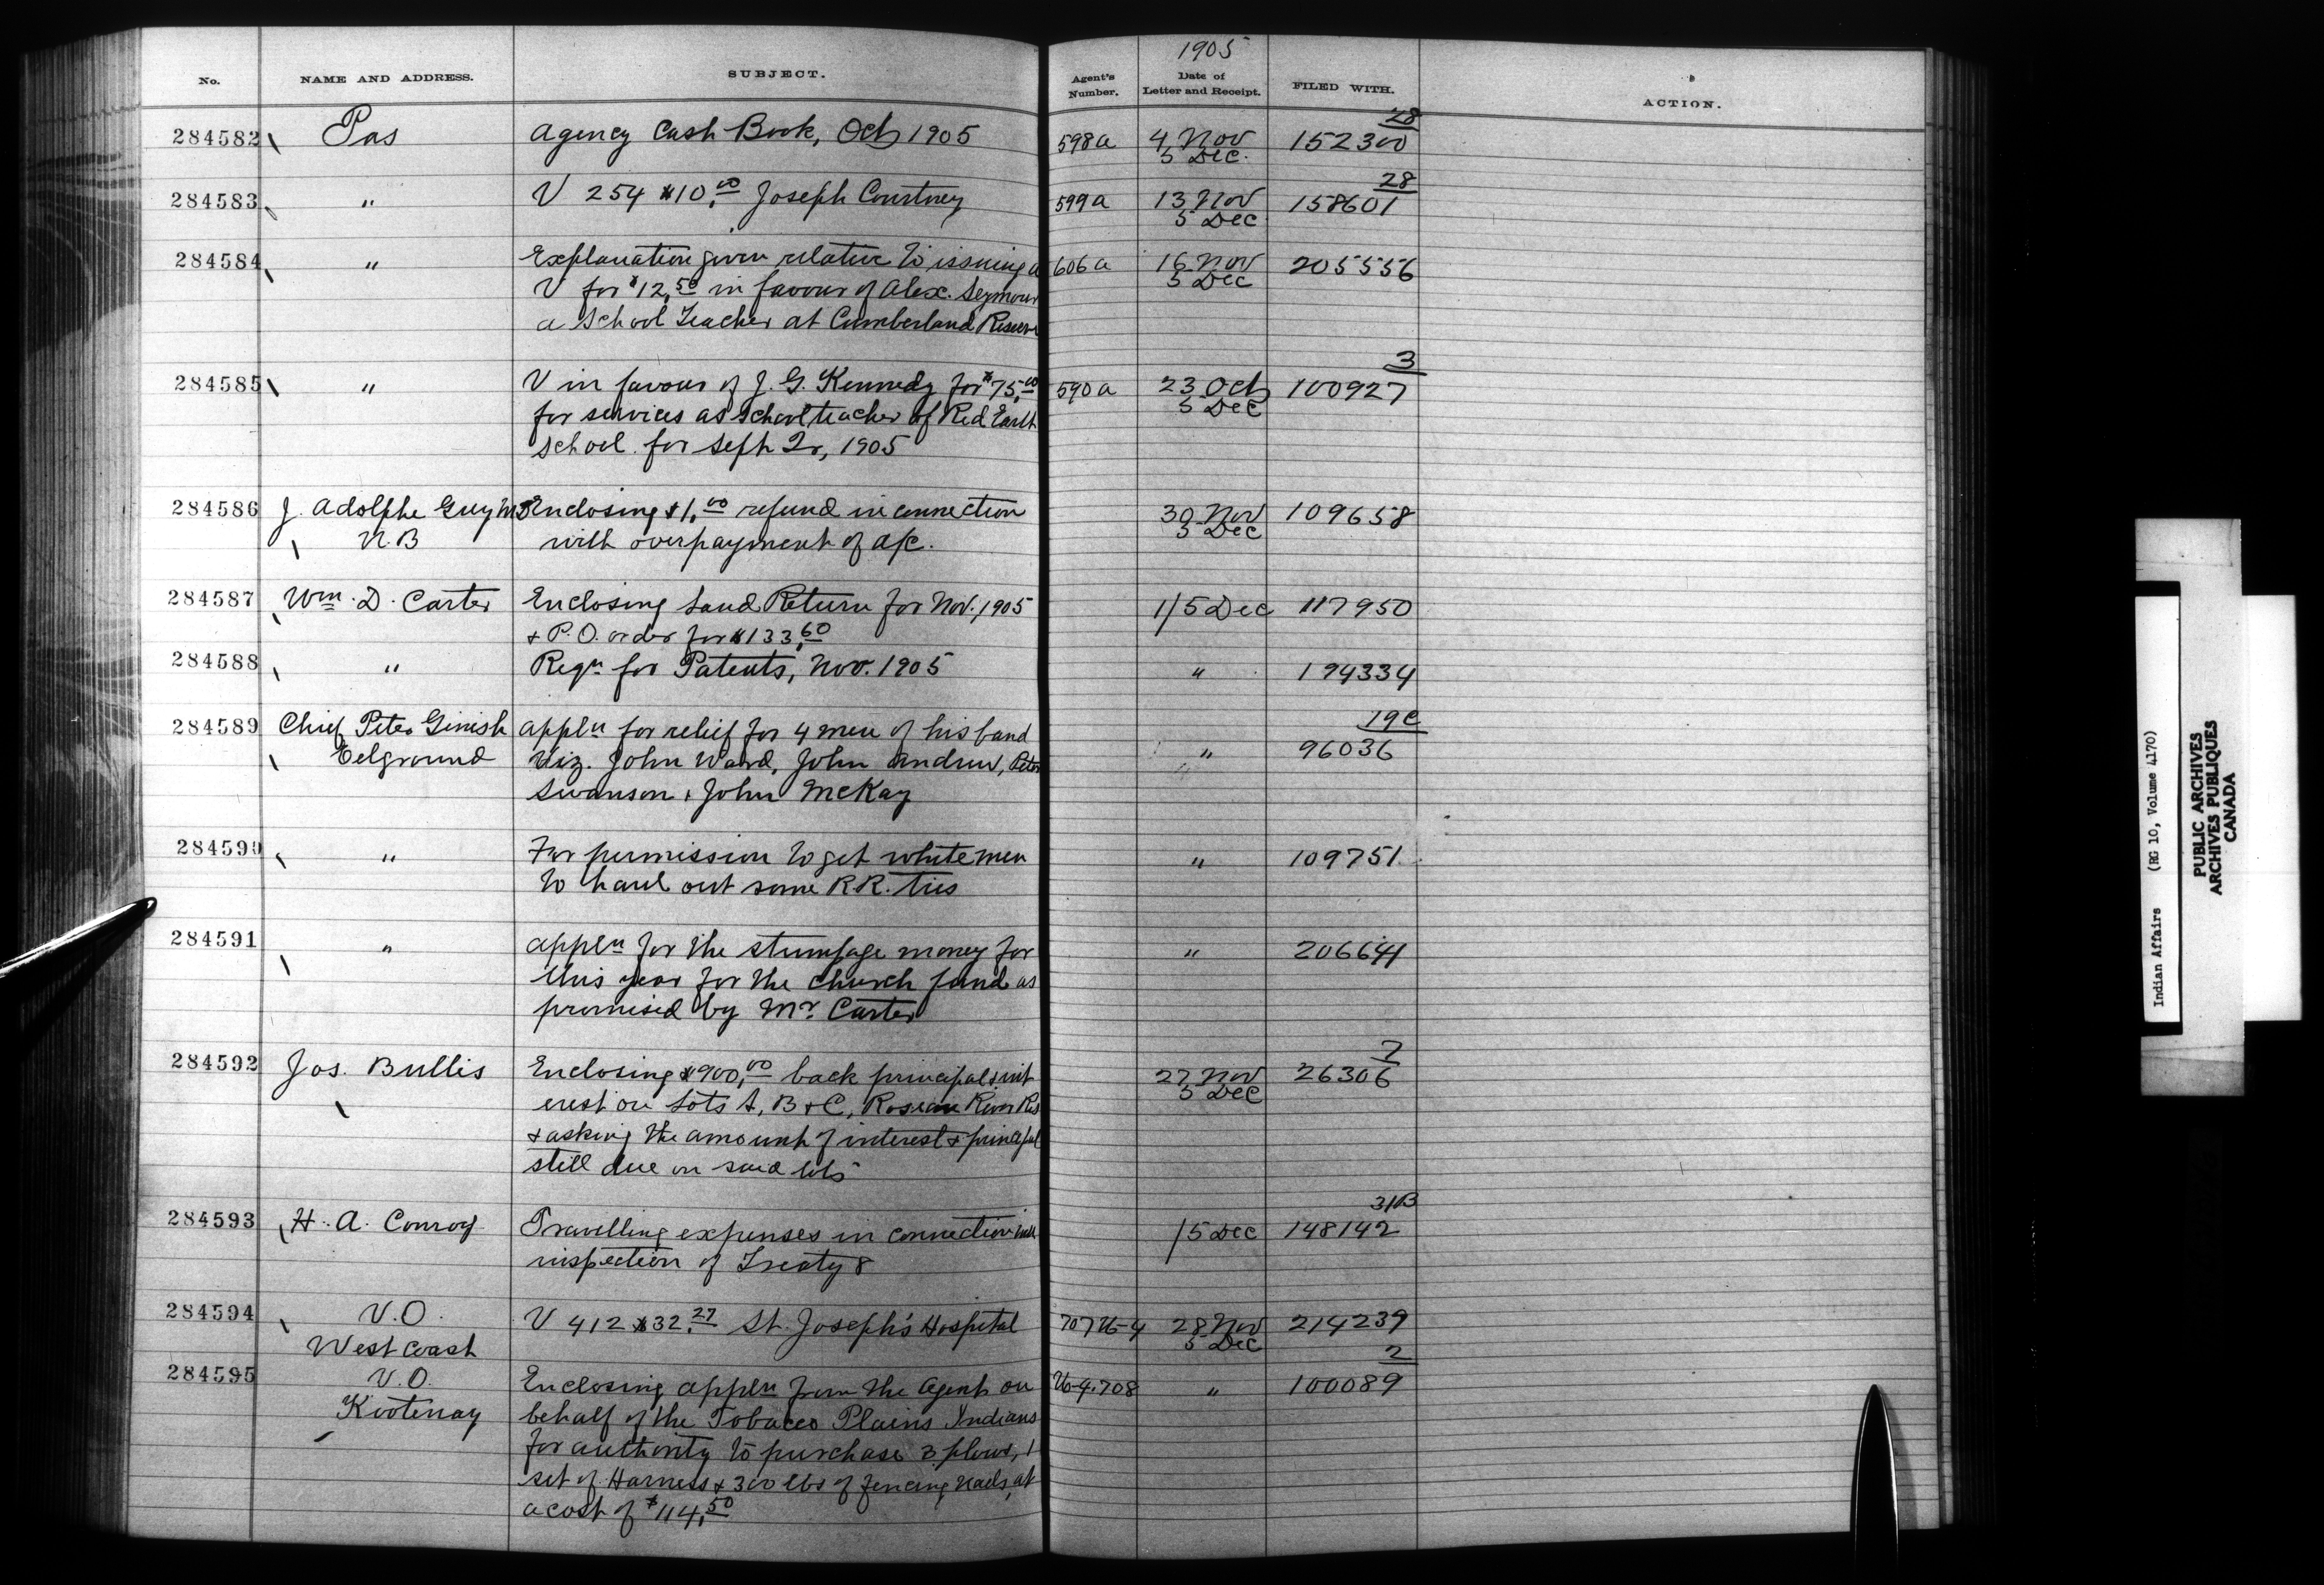 1905
No. NAME AND ADDRESS. SUBJECT. Agent's Number. Date of Letter and Receipt. FILED WITH. ACTION.
28
284582 Pas Agency Cash Book, Oct 1905 598a 4 Nov 152300
5 Dec.
28
284583 " V 254 $10.00 Joseph Courtney 599a 13 Nov 158601
5 Dec
284584 " Explanation given relative to issuing a 606a 16 Nov 205556
V for $12.50 in favour of Alex. Seymour 5 Dec
a School Teacher at Cumberland Reserve
3
284585 " V in favour of J. G. Kennedy for $75.00 590a 23 Oct 100927
for services as school teacher of Red Earth 5 Dec
School for Sept Qr, 1905
284586 J. Adolphe Guy Enclosing $1.00 refund in connection 30 Nov 109658
N.B with overpayment of a/c. 5 Dec
284587 Wm. D. Carter Enclosing Land Return for Nov. 1905 1/5 Dec 117950
& P.O. order for $133.60
284588 " Reqn for Patents, Nov. 1905 " 194334
19C
284589 Chief Peter Ginish appln for relief for 4 men of his band " 96036
Eelground viz. John Ward, John Andrew, Peter
Swanson & John McKay
284590 " For permission to get white men " 109751
to haul out some R.R. ties
284591 " appln for the stumpage money for " 206641
this year for the church fund as
promised by Mr. Carter
7
284592 Jos. Bullis Enclosing $900.00 back principal & int 27 Nov 26306
erest on Lots A, B & C, Roseau River Res 5 Dec
& asking the amount of interest & principal
still due on said lots
31B
284593 H. A. Conroy Travelling expenses in connection with 1/5 Dec 148142
inspection of Treaty 8
284594 V.O. V 412 $32.27 St. Joseph's Hospital 707 28 Nov 214239
West Coast 5 Dec
2
284595 V.O. Enclosing appln from the Agent on 708 " 100089
Kootenay behalf of the Tobacco Plains Indians
for authority to purchase 3 plows, 1
set of Harness & 300 lbs of fencing nails, at
a cost of $114.50
Indian Affairs (RG 10, Volume 4170)
PUBLIC ARCHIVES
ARCHIVES PUBLIQUES
CANADA